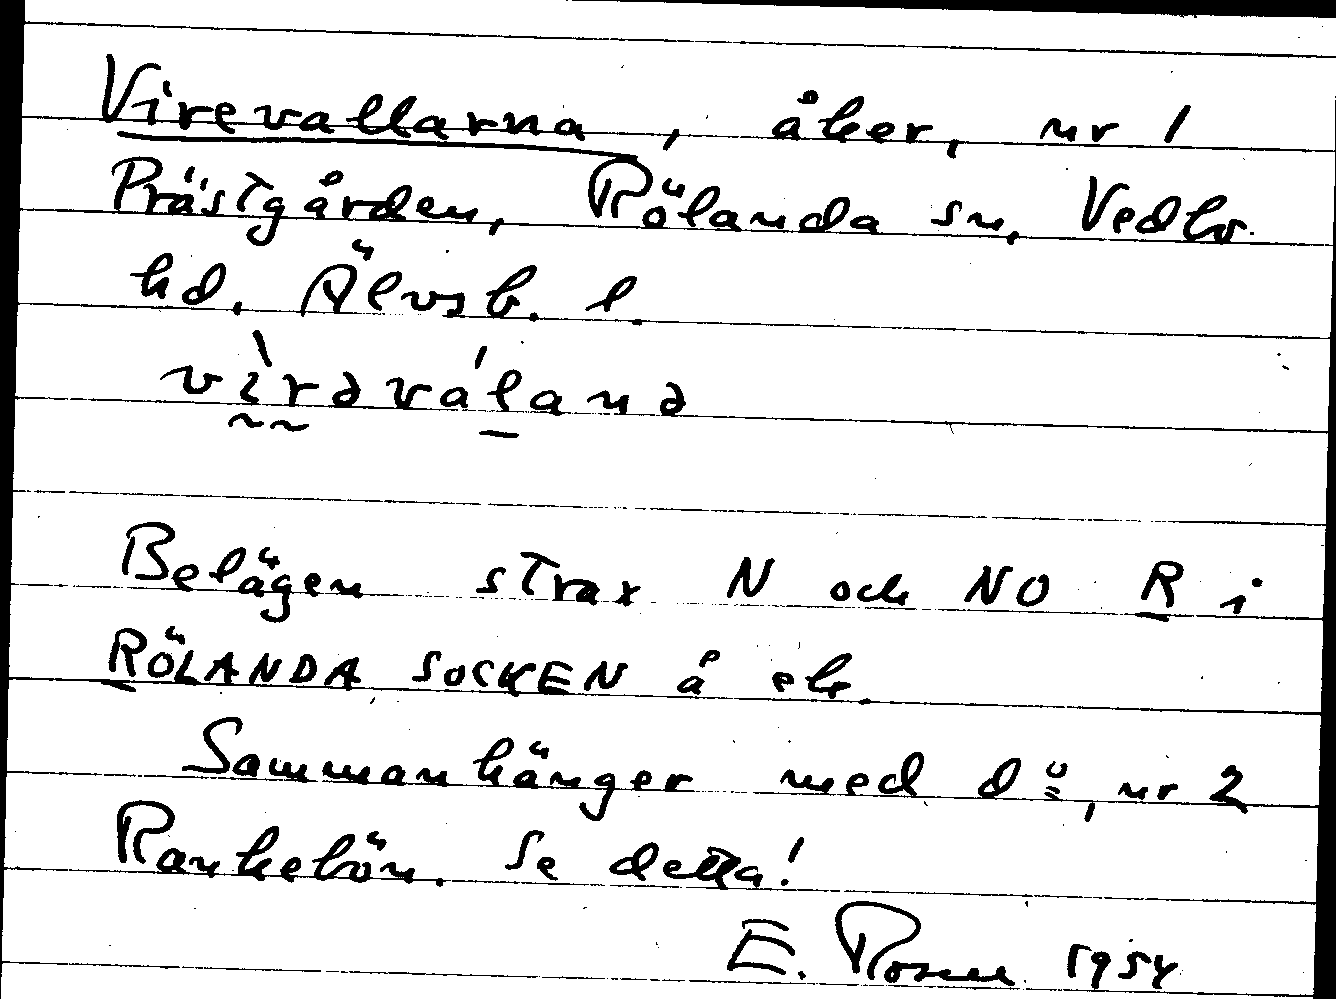 Virevallarna, åker, nr 1
Prästgården, Rölanda sn, Vedbo
hd, Älvsb. l.
vìrəváḷanə
Belägen strax N och NO R i
RÖLANDA SOCKEN å ek.
Sammanhänger med do, nr 2
Rankebön. Se detta!
E. Rosell 1954